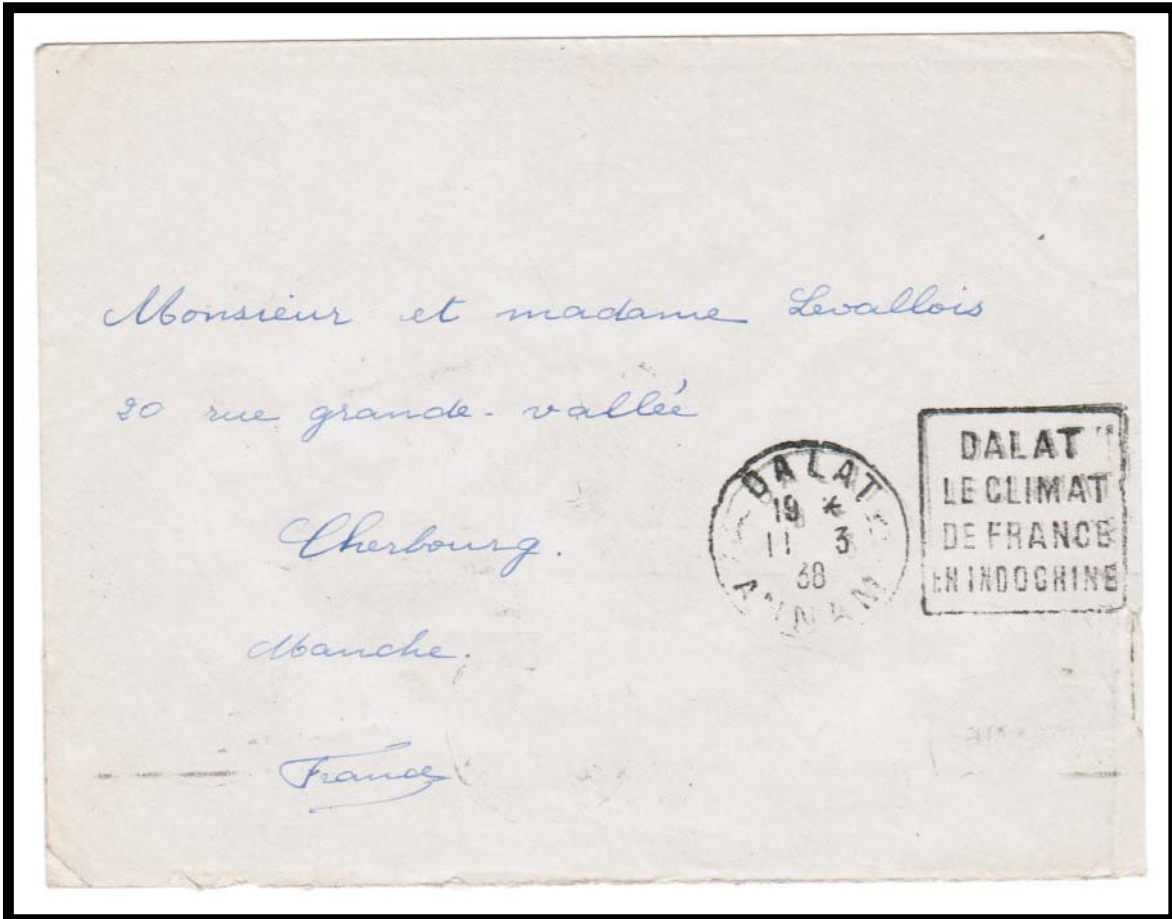 Monsieur et madame Levallois
20 rue grande-vallée
Cherbourg.
Manche.
France
DALAT
19 *
11 3
38
ANNAM
DALAT
LE CLIMAT
DE FRANCE
EN INDOCHINE